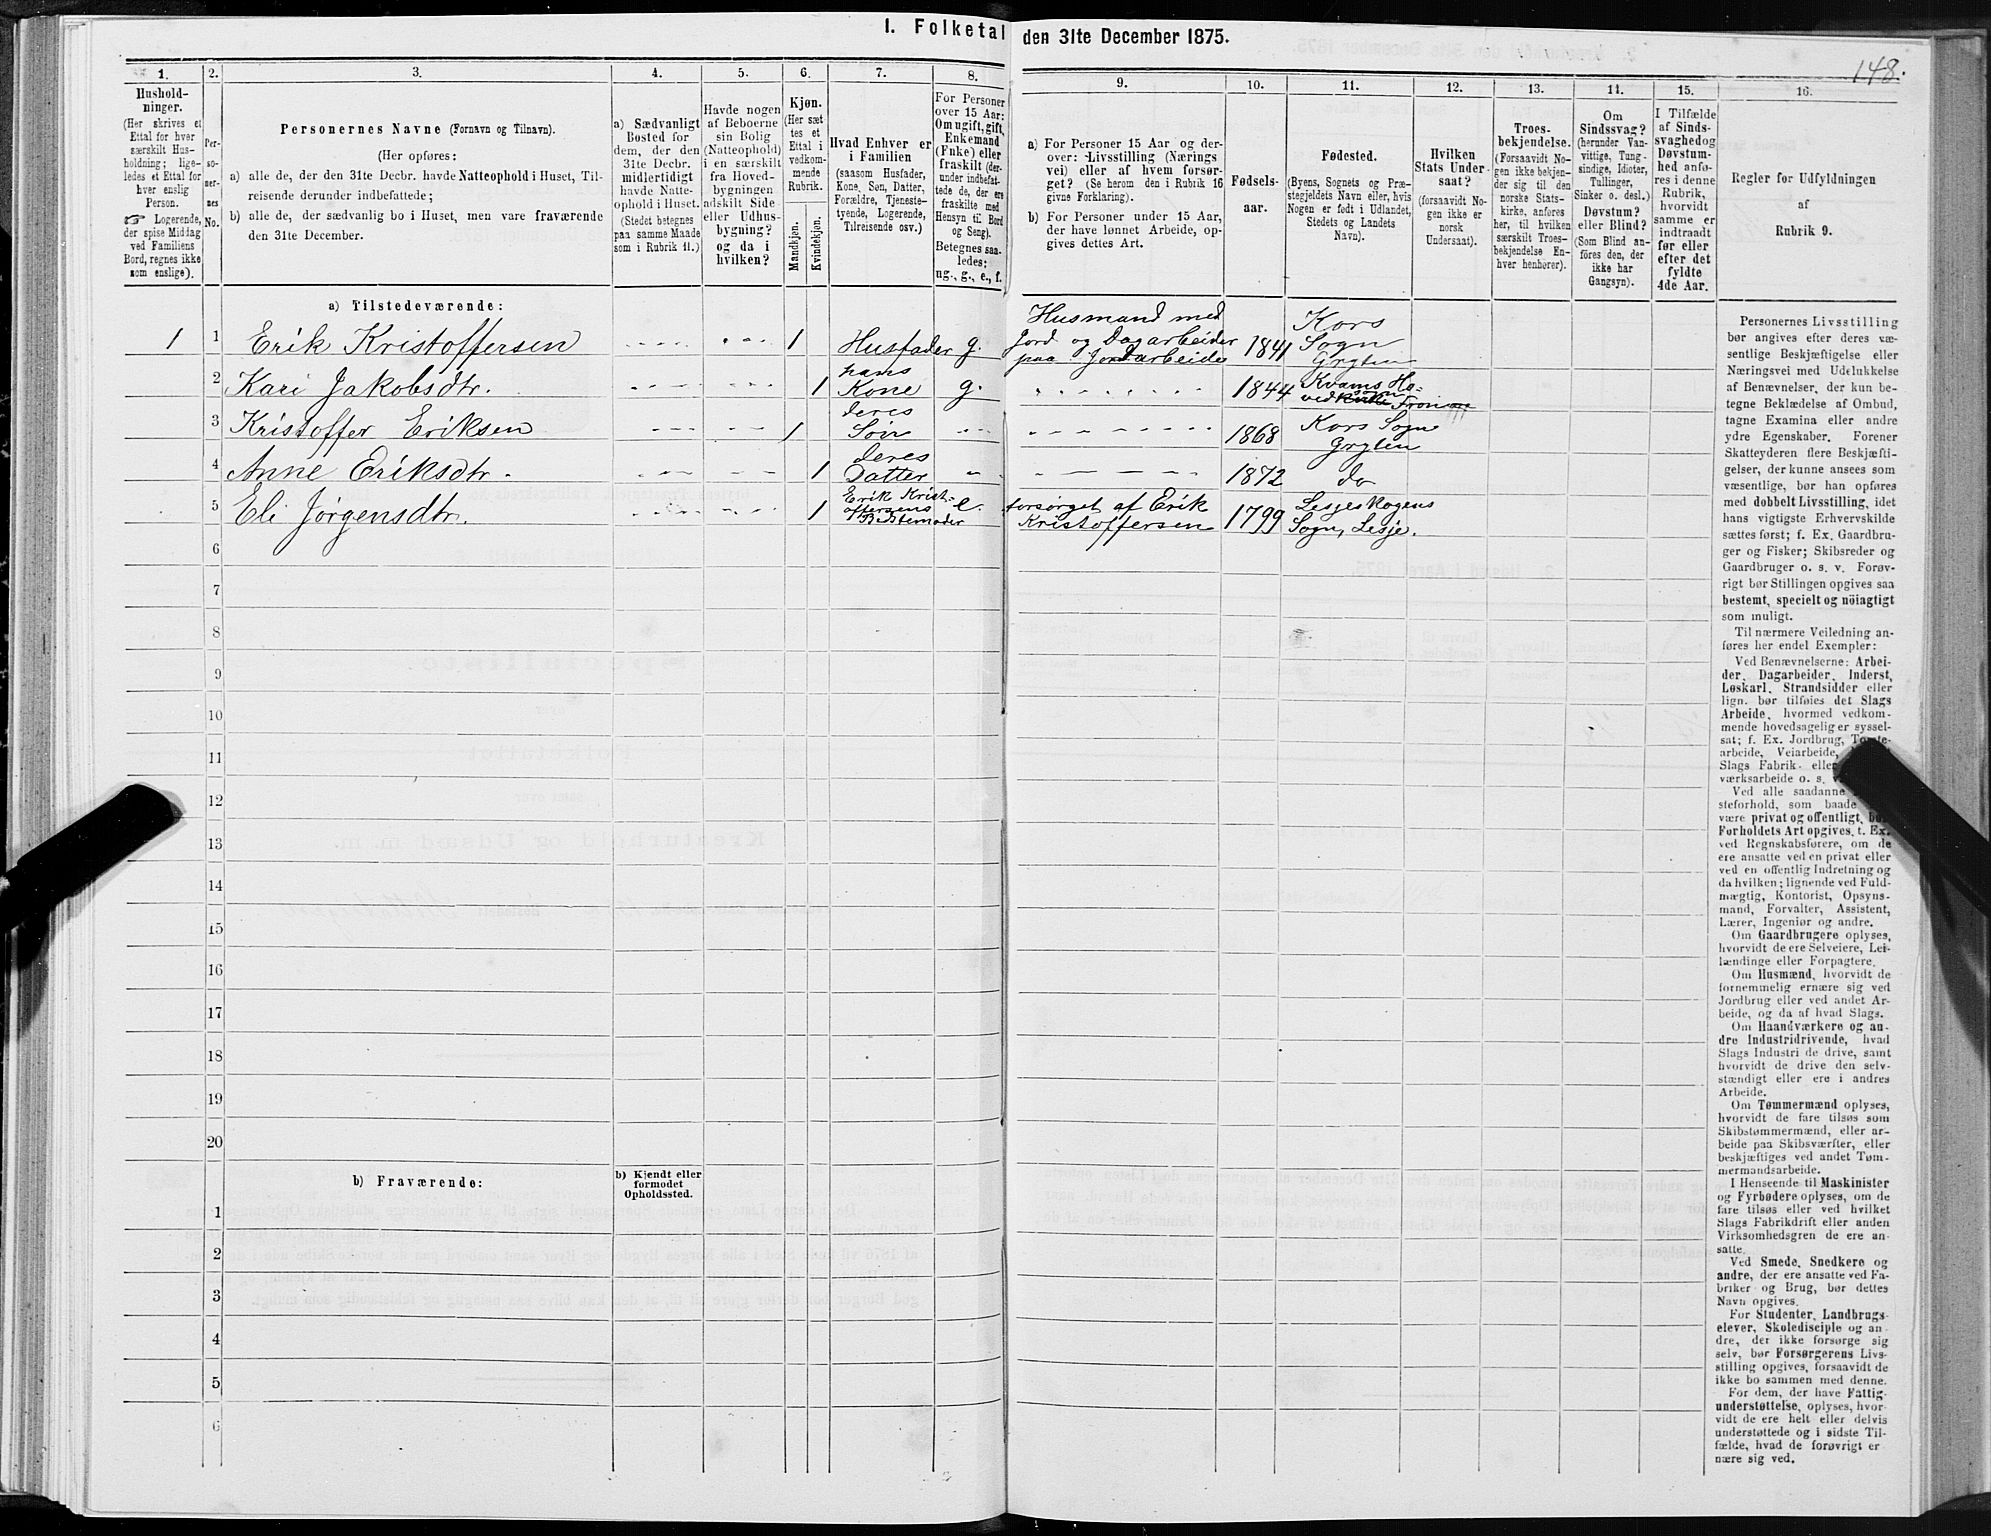 I. Folketal den 31te December 1875.
148.
1.
Hushold-
ninger.
(Her skrives et
Ettal for hver
særskilt Hus-
holdning; lige-
ledes et Ettal for
hver enslig
Person.
☞ Logerende,
der spise Middag
ved Familiens
Bord, regnes ikke
som enslige).
2.
Per-
so-
ner-
nes
No.
3.
Personernes Navne (Fornavn og Tilnavn).
(Her opføres:
a) alle de, der den 31te Decbr. havde Natteophold i Huset, Til-
reisende derunder indbefattede;
b) alle de, der sædvanlig bo i Huset, men vare fraværende
den 31te December.
4.
a) Sædvanligt
Bosted for
dem, der den
31te Decbr.
midlertidigt
havde Natte-
ophold i Huset.
(Stedet betegnes
paa samme Maade
som i Rubrik 11.)
5.
Havde nogen
af Beboerne
sin Bolig
(Natteophold)
i en særskilt
fra Hoved-
bygningen
adskilt Side-
eller Udhus-
bygning?
og da i
hvilken?
6.
Kjøn.
(Her sæt
tes et
Ettal i
vedkom-
mende
Rubrik.
Mandkjøn.
Kvindekjøn.
7.
Hvad Enhver er
i Familien
(saasom Husfader,
Kone, Søn, Datter,
Forældre, Tjeneste-
tyende, Logerende,
Tilreisende osv.)
8.
For Personer
over 15 Aar:
Om ugift, gift,
Enkemand
(Enke) eller
fraskilt (der-
under indbefat-
tede de, der ere
fraskilte med
Hensyn til Bord
og Seng).
Betegnes saa-
ledes:
ug., g., e., f.
9.
a) For Personer 15 Aar og der-
over: Livsstilling (Nærings
vei) eller af hvem forsør-
get? (Se herom den i Rubrik 16
givne Forklaring).
b) For Personer under 15 Aar,
der have lønnet Arbeide, op-
gives dettes Art.
10.
Fødsels-
aar.
11.
Fødested.
(Byens, Sognets og Præ-
stegjeldets Navn eller, hvis
Nogen er født i Udlandet,
Stedets og Landets
Navn).
12.
Hvilken
Stats Under-
saat?
(forsaavidt No-
gen ikke er
norsk
Undersaat).
13.
Troes-
bekjendelse.
(Forsaavidt No-
gen ikke bekjen-
der sig til den
norske Stats-
kirke, anføres
her, til hvilken
særskilt Troes-
bekjendelse En-
hver henhører).
14.
Om
Sindssvag?
(herunder Van-
vittige, Tung-
sindige, Idioter,
Tullinger,
Sinker o. desl.)
Døvstum?
eller Blind?
(Som Blind an-
föres den, der
ikke har
Gangsyn).
15.
I Tilfælde
af Sinds-
svaghed og
Døvstum-
hed anfø-
res i denne
Rubrik,
hvorvidt
samme er
indtraadt
før eller
efter det
fyldte
4de Aar.
16.
Regler for Udfyldningen
af
Rubrik 9.
a) Tilstedeværende:
1 1 Erik Kristoffersen 1 Husfader g. Husmand med
Jord og Dagarbeider
paa Jordarbeide 1841 Kors
Sogn
Grytten
2 Kari Jakobsdtr. 1 hans
Kone g. 1844 Kvams Ho-
ved sogn Fron
3 Kristoffer Eriksen 1 deres
Søn 1868 Kors Sogn
Grytten
4 Anne Eriksdtr. 1 deres
Datter 1872 do
5 Eli Jørgensdtr. 1 Erik Krist-
offersens
Bedstemoder e. forsørget af Erik
Kristoffersen 1799 Lesjeskogens
Sogn, Lesje.
6
7
8
9
10
11
12
13
14
15
16
17
18
19
20
b) Fraværende:
b) Kjendt eller
formodet
Opholdssted.
1
2
3
4
5
6
Personernes Livsstilling
bør angives efter deres væ-
sentlige Beskjæftigelse eller
Næringsvei med Udelukkelse
af Benævnelser, der kun be-
tegne Beklædelse af Ombud,
tagne Examina eller andre
ydre Egenskaber. Forener
Skatteyderen flere Beskjæfti-
gelser, der kunne ansees som
væsentlige, bør han opføres
med dobbelt Livsstilling, idet
hans vigtigste Erhvervskilde
sættes først; f. Ex. Gaardbru-
ger og Fisker; Skibsreder og
Gaardbruger o. s. v. Forøv-
rigt bør Stillingen opgives saa
bestemt, specielt og nöiagtigt
som muligt.
Til nærmere Veiledning an-
føres her endel Exempler:
Ved Benævnelserne: Arbei-
der, Dagarbeider, Inderst,
Løskarl, Strandsidder eller
lign. bør tilføies det Slags
Arbeide, hvormed vedkom-
mende hovedsagelig er syssel-
sat; f. Ex. Jordbrug,
arbeide, Veiarbeide,
Slags Fabrik- eller
værksarbeide o. s.
Ved alle saadanne
steforhold, som baade
være privat og offentligt, bør
Forholdets Art opgives, t. Ex.
ved Regnskabsførere, om de
ere ansatte ved en privat eller
ved en offentlig Indretning og
da hvilken; lignende ved Fuld-
mægtig, Kontorist, Opsyns-
mand, Forvalter, Assistent,
Lærer, Ingeniør og andre.
Om Gaardbrugere oplyses,
hvorvidt de ere Selveiere, Lei-
lændinge eller Forpagtere.
Om Husmænd, hvorvidt de
fornemmelig ernære sig ved
Jordbrug eller ved andet Ar-
beide, og da af hvad Slags.
Om Haandværkere og an-
dre Industridrivende, hvad
Slags Industri de drive, samt
hvorvidt de drive den selv-
stændigt eller ere i andres
Arbeide.
Om Tømmermænd oplyses,
hvorvidt de fare tilsøs som
Skibstømmermænd, eller ar-
beide paa Skibsværfter, eller
beskjæftiges ved andet Tøm-
mermandsarbeide.
I Henseende til Maskinister
og Fyrbødere oplyses, om de
fare tilsøs eller ved hvilket
Slags Fabrikdrift eller anden
Virksomhedsgren de ere an-
satte.
Ved Smede, Snedkere og
andre, der ere ansatte ved Fa-
briker og Brug, bør dettes
Navn opgives.
For Studenter, Landbrugs-
elever, Skoledisciple og an-
dre, der ikke forsørge sig
selv, bør Forsørgerens Livs-
stilling opgives, forsaavidt de
ikke bo sammen med denne.
For dem, der have Fattig-
understøttelse, oplyses, hvor-
vidt de ere helt eller delvis
understøttede og i sidste Til-
fælde, hvad de forøvrigt er-
nære sig ved.